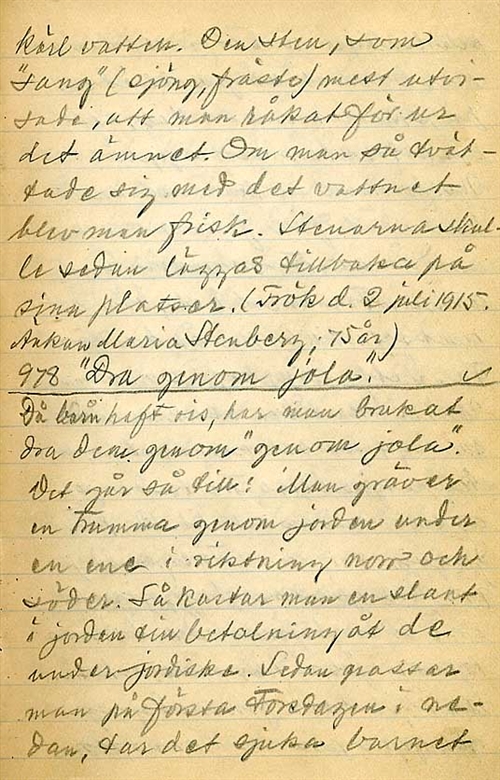 kärl vatten. Den sten, som
"sang" (sjöng, fräste) mest utvi-
sade, att man råkat för ur
det ämnet. Om man så tvät-
tade sig med det vattnet
blev man frisk. Stenarna skul-
le sedan läggas tillbaka på
sina platser. (Frök d. 2 juli 1915.
Änkan Maria Stenberg, 75 år)
978 "Dra genom jola".
Då barn haft ris, har man brukat
dra dem genom "genom jola".
Det går så till: Man gräver
en trumma genom jorden under
en ene i riktning norr och
söder. Så kastar man en slant
i jorden till betalning åt de
underjordiske. Sedan passar
man på första Toredagen i ne-
dan, tar det sjuka barnet